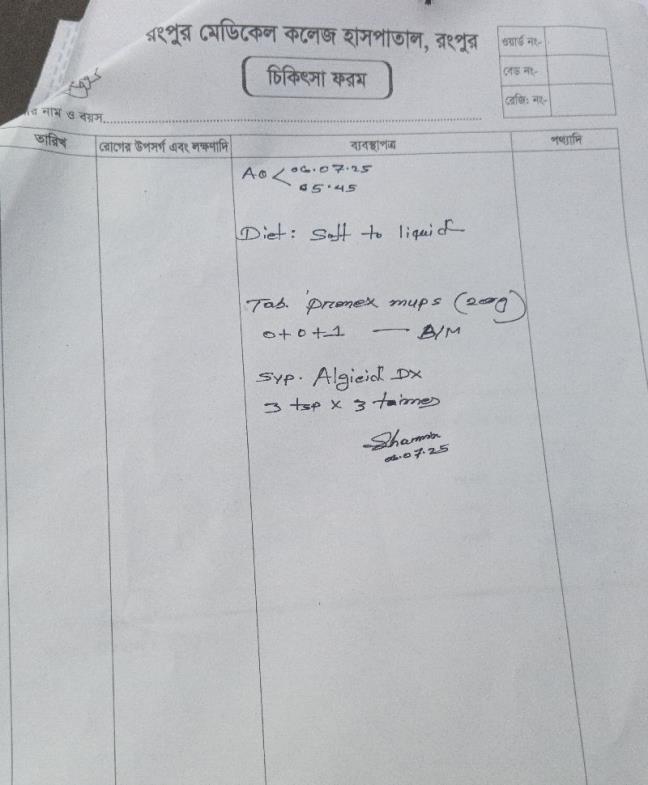 রংপুর মেডিকেল কলেজ হাসপাতাল, রংপুর
চিকিৎসা ফরম
ওয়ার্ড নং-
বেড নং-
রেজি: নং-
নাম ও বয়স
তারিখ
রোগের উপসর্গ এবং লক্ষণাদি
ব্যবস্থাপত্র
পথ্যাদি
AO < 06.07.25
05.45
Diet: Soft to liquid
Tab. Promex mups (20mg)
0+0+1 — B/M
Syp. Algicid DX
3 tsp x 3 taimes
Sharmin
06.07.25